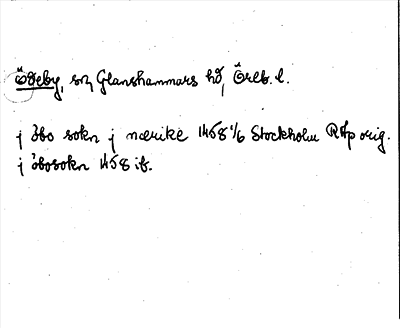 Ödeby, sn, Glanshammars hd, Öreb. l.
j öbo sokn j nærike 1458 1/6 Stockholm RAp orig.
j öbosokn 1458 ib.